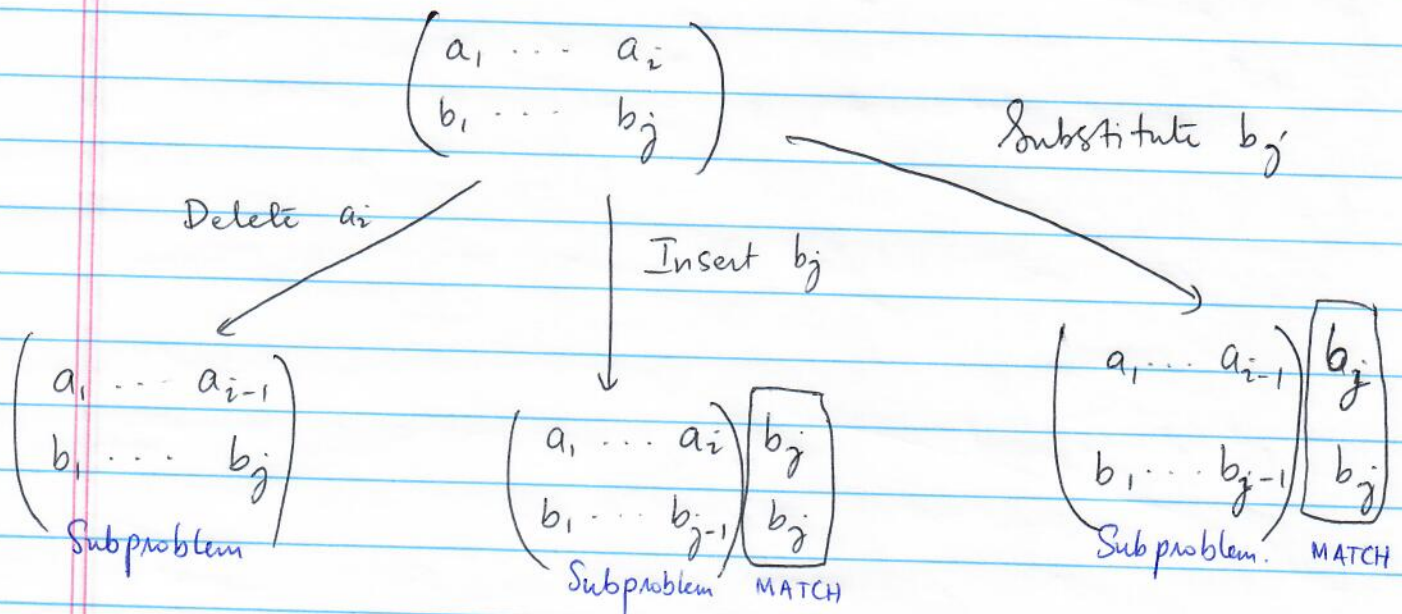 a₁ ··· aᵢ
b₁ ··· bⱼ
Substitute bⱼ
Delete aᵢ
Insert bⱼ
a₁ ··· aᵢ₋₁
b₁ ··· bⱼ
Subproblem
a₁ ··· aᵢ bⱼ
b₁ ··· bⱼ₋₁ bⱼ
Subproblem MATCH
a₁ ··· aᵢ₋₁ bⱼ
b₁ ··· bⱼ₋₁ bⱼ
Subproblem. MATCH